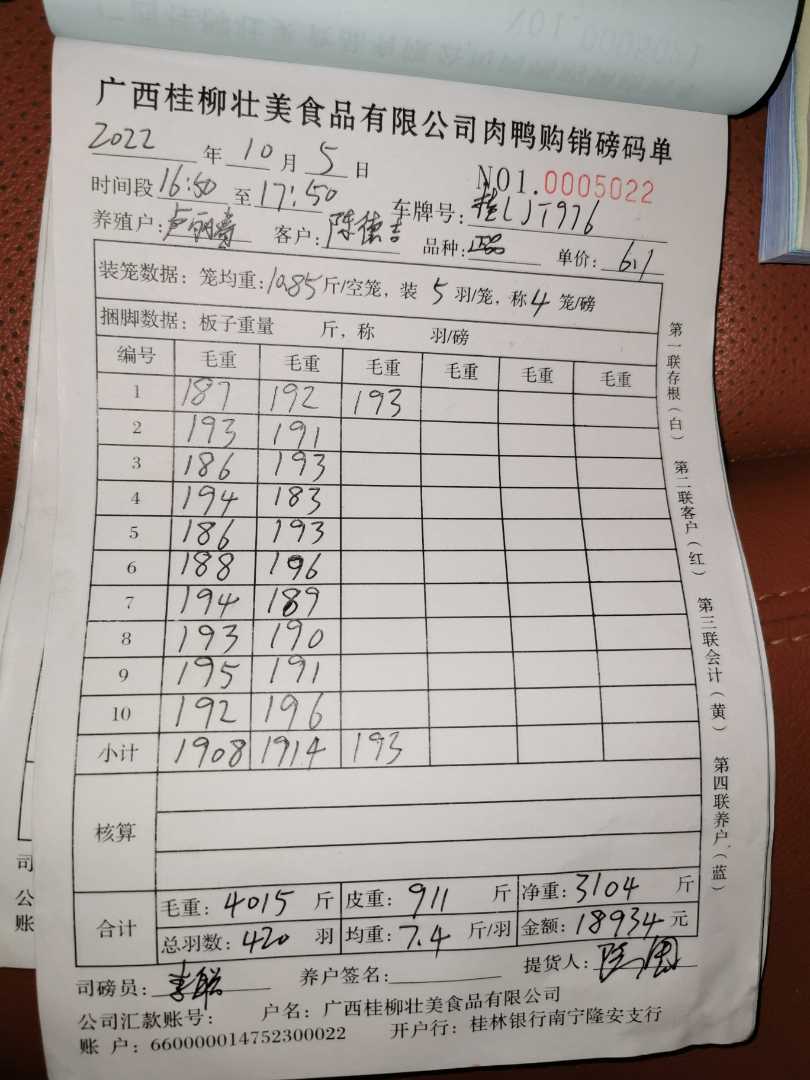 广西桂柳壮美食品有限公司肉鸭购销磅码单
2022年10月5日 NO1.0005022
时间段16:50至17:50 车牌号:桂LJT976
养殖户: 客户:陈德吉 品种:正品 单价:6.1
装笼数据:笼均重:10.85斤/空笼,装5羽/笼,称4笼/磅
捆脚数据:板子重量 斤,称 羽/磅
编号 毛重 毛重 毛重 毛重 毛重 毛重
1 187 192 193
2 193 191
3 186 193
4 194 183
5 186 193
6 188 196
7 194 189
8 193 190
9 195 191
10 192 196
小计 1908 1914 193
核算
合计
毛重:4015斤 皮重:911斤 净重:3104斤
总羽数:420羽 均重:7.4斤/羽 金额:18934元
司磅员: 养户签名: 提货人:
公司汇款账号: 户名:广西桂柳壮美食品有限公司
账 户:660000014752300022 开户行:桂林银行南宁隆安支行
第一联存根(白)
第二联客户(红)
第三联会计(黄)
第四联养户(蓝)
司
公
账